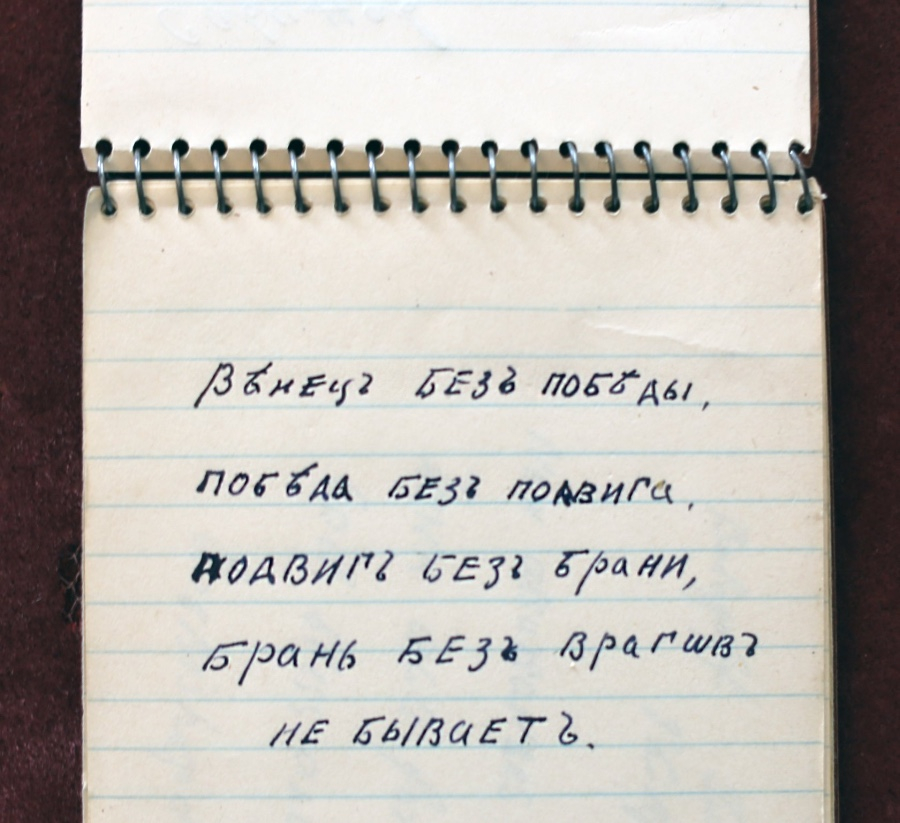 Вѣнецъ безъ побѣды,
побѣда безъ подвига,
подвигъ безъ брани,
брань безъ врагѡвъ
не бываетъ.